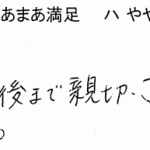 あまあ満足　ハ やや
後まで親切、こ